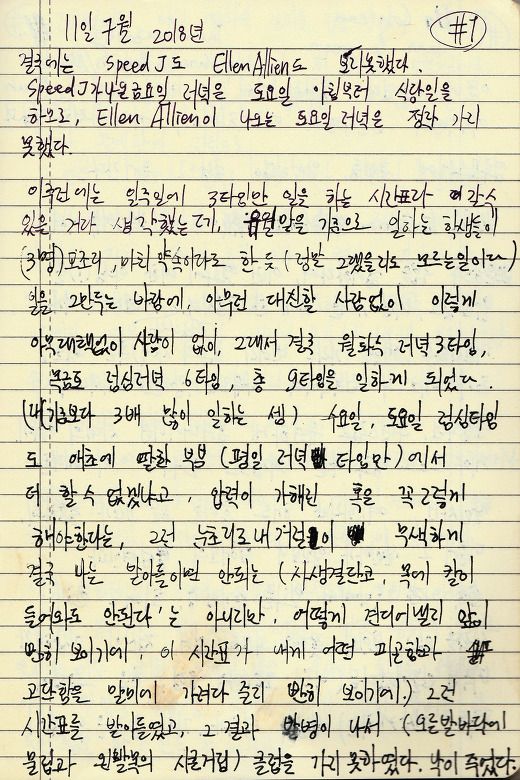 11일 7월 2018년
#1
결국에는 speed J도 Ellen Allien도 보러못했다.
Speed J가 나오는 금요일 저녁은 토요일 아침부터 식당일을
하므로, Ellen Allien이 나오는 토요일 저녁은 정작 가리
못했다.
이주전에는 일주일에 3타임만 일을 하는 시간표라
있을 거라 생각했는데, 월말을 기준으로 일하는 학생들이
(3명) 모조리, 마치 약속이라도 한 듯 (정말 그랬을리도 모르는일이다)
일을 그만두는 바람에, 아무런 대신할 사람없이 이렇게
아무대책없이 사람이 없이, 그래서 결국 월화수 저녁 3타임,
목금토 점심저녁 6타임, 총 9타임을 일하게 되었다.
(내 기준보다 3배 많이 일하는 셈) 수요일, 토요일 점심타임
도 애초에 말한 부분 (평일 저녁 타임만)에서
더 할 수 없겠냐고, 압력이 가해린 혹은 꼭 그렇게
해야한다는, 그런 눈초리로 내 거절이 무색하게
결국 나는 받아들이면 안되는 (사생결단코, 목에 칼이
들어와도 안된다'는 아니리만, 어떻게 견디어낼리 앞이
빤히 보이기에, 이 시간표가 내게 어떤 피곤함과
고단함을 말미에 가져다 줄리 빤히 보이기에.) 그런
시간표를 받아들였고, 그 결과 병이 나서 (오른발바닥에
물집과 왼팔목의 시큰거림) 클럽을 가리 못하였다. 낙이 죽었다.